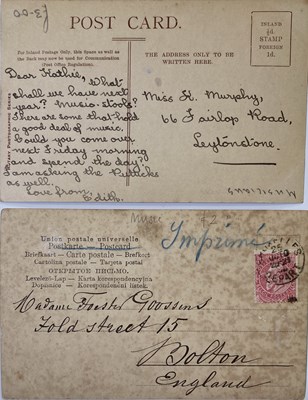 £3-00
POST CARD.
For Inland Postage Only, this Space as well as
the Back may now be used for Communication
(Post Office Regulation).
THE ADDRESS ONLY TO BE
WRITTEN HERE.
INLAND
½d.
STAMP
FOREIGN
1d.
Dear Kathie,
What
shall we have next
year? Music-stools?
There are some that hold
a good deal of music.
Could you come over
next Friday morning
and spend the day?
I am asking the
as well.
Love from,
Edith.
Miss K. Murphy,
66 Fairlop Road,
Leytonstone.
Music
Union postale universelle
Postkarte — Postcard
Briefkaart — Carte postale — Brefkort
Cartolina postale — Tarjeta postal
ОТКРЫТОЕ ПИСЬМО.
Levelező-Lap — Karta korespondencyjna
Dopisnice — Korespondenční lístek.
Imprimé
Madame Goossens
Fold street 15
Bolton
England